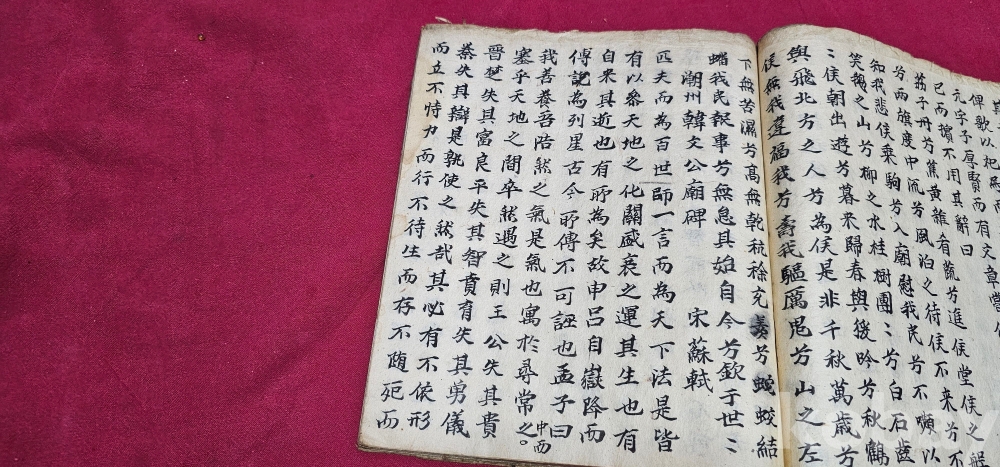 俾歌以祀焉而
元字子厚賢而有文章嘗
已而擯不用其辭曰
荔子丹兮蕉黃雜肴蔬兮進侯堂侯之船
兮兩旗度中流兮風泊之待侯不来兮不
知我悲侯乘駒兮入廟慰我民兮不嚬以
笑鵝之山兮柳之水桂樹團:兮白石齒
:侯朝出遊兮暮来歸春與猨吟兮秋鶴
與飛北方之人兮為侯是非千秋萬歲兮
侯無我違福我兮壽我驅厲鬼兮山之左
下無苦濕兮高無乾秔稌充羨兮蛇蛟結
蟠我民報事兮無怠其始自今兮欽于世:
潮州韓文公廟碑 宋蘇軾
匹夫而為百世師一言而為天下法是皆
有以參天地之化關盛衰之運其生也有
自来其逝也有所為矣故申呂自嶽降而
傅說為列星古今所傳不可誣也孟子曰
我善養吾浩然之氣是氣也寓於尋常之中而
塞乎天地之間卒然遇之則王公失其貴
晉楚失其富良平失其智賁育失其勇儀
秦失其辯是孰使之然哉其必有不依形
而立不恃力而行不待生而存不随死而